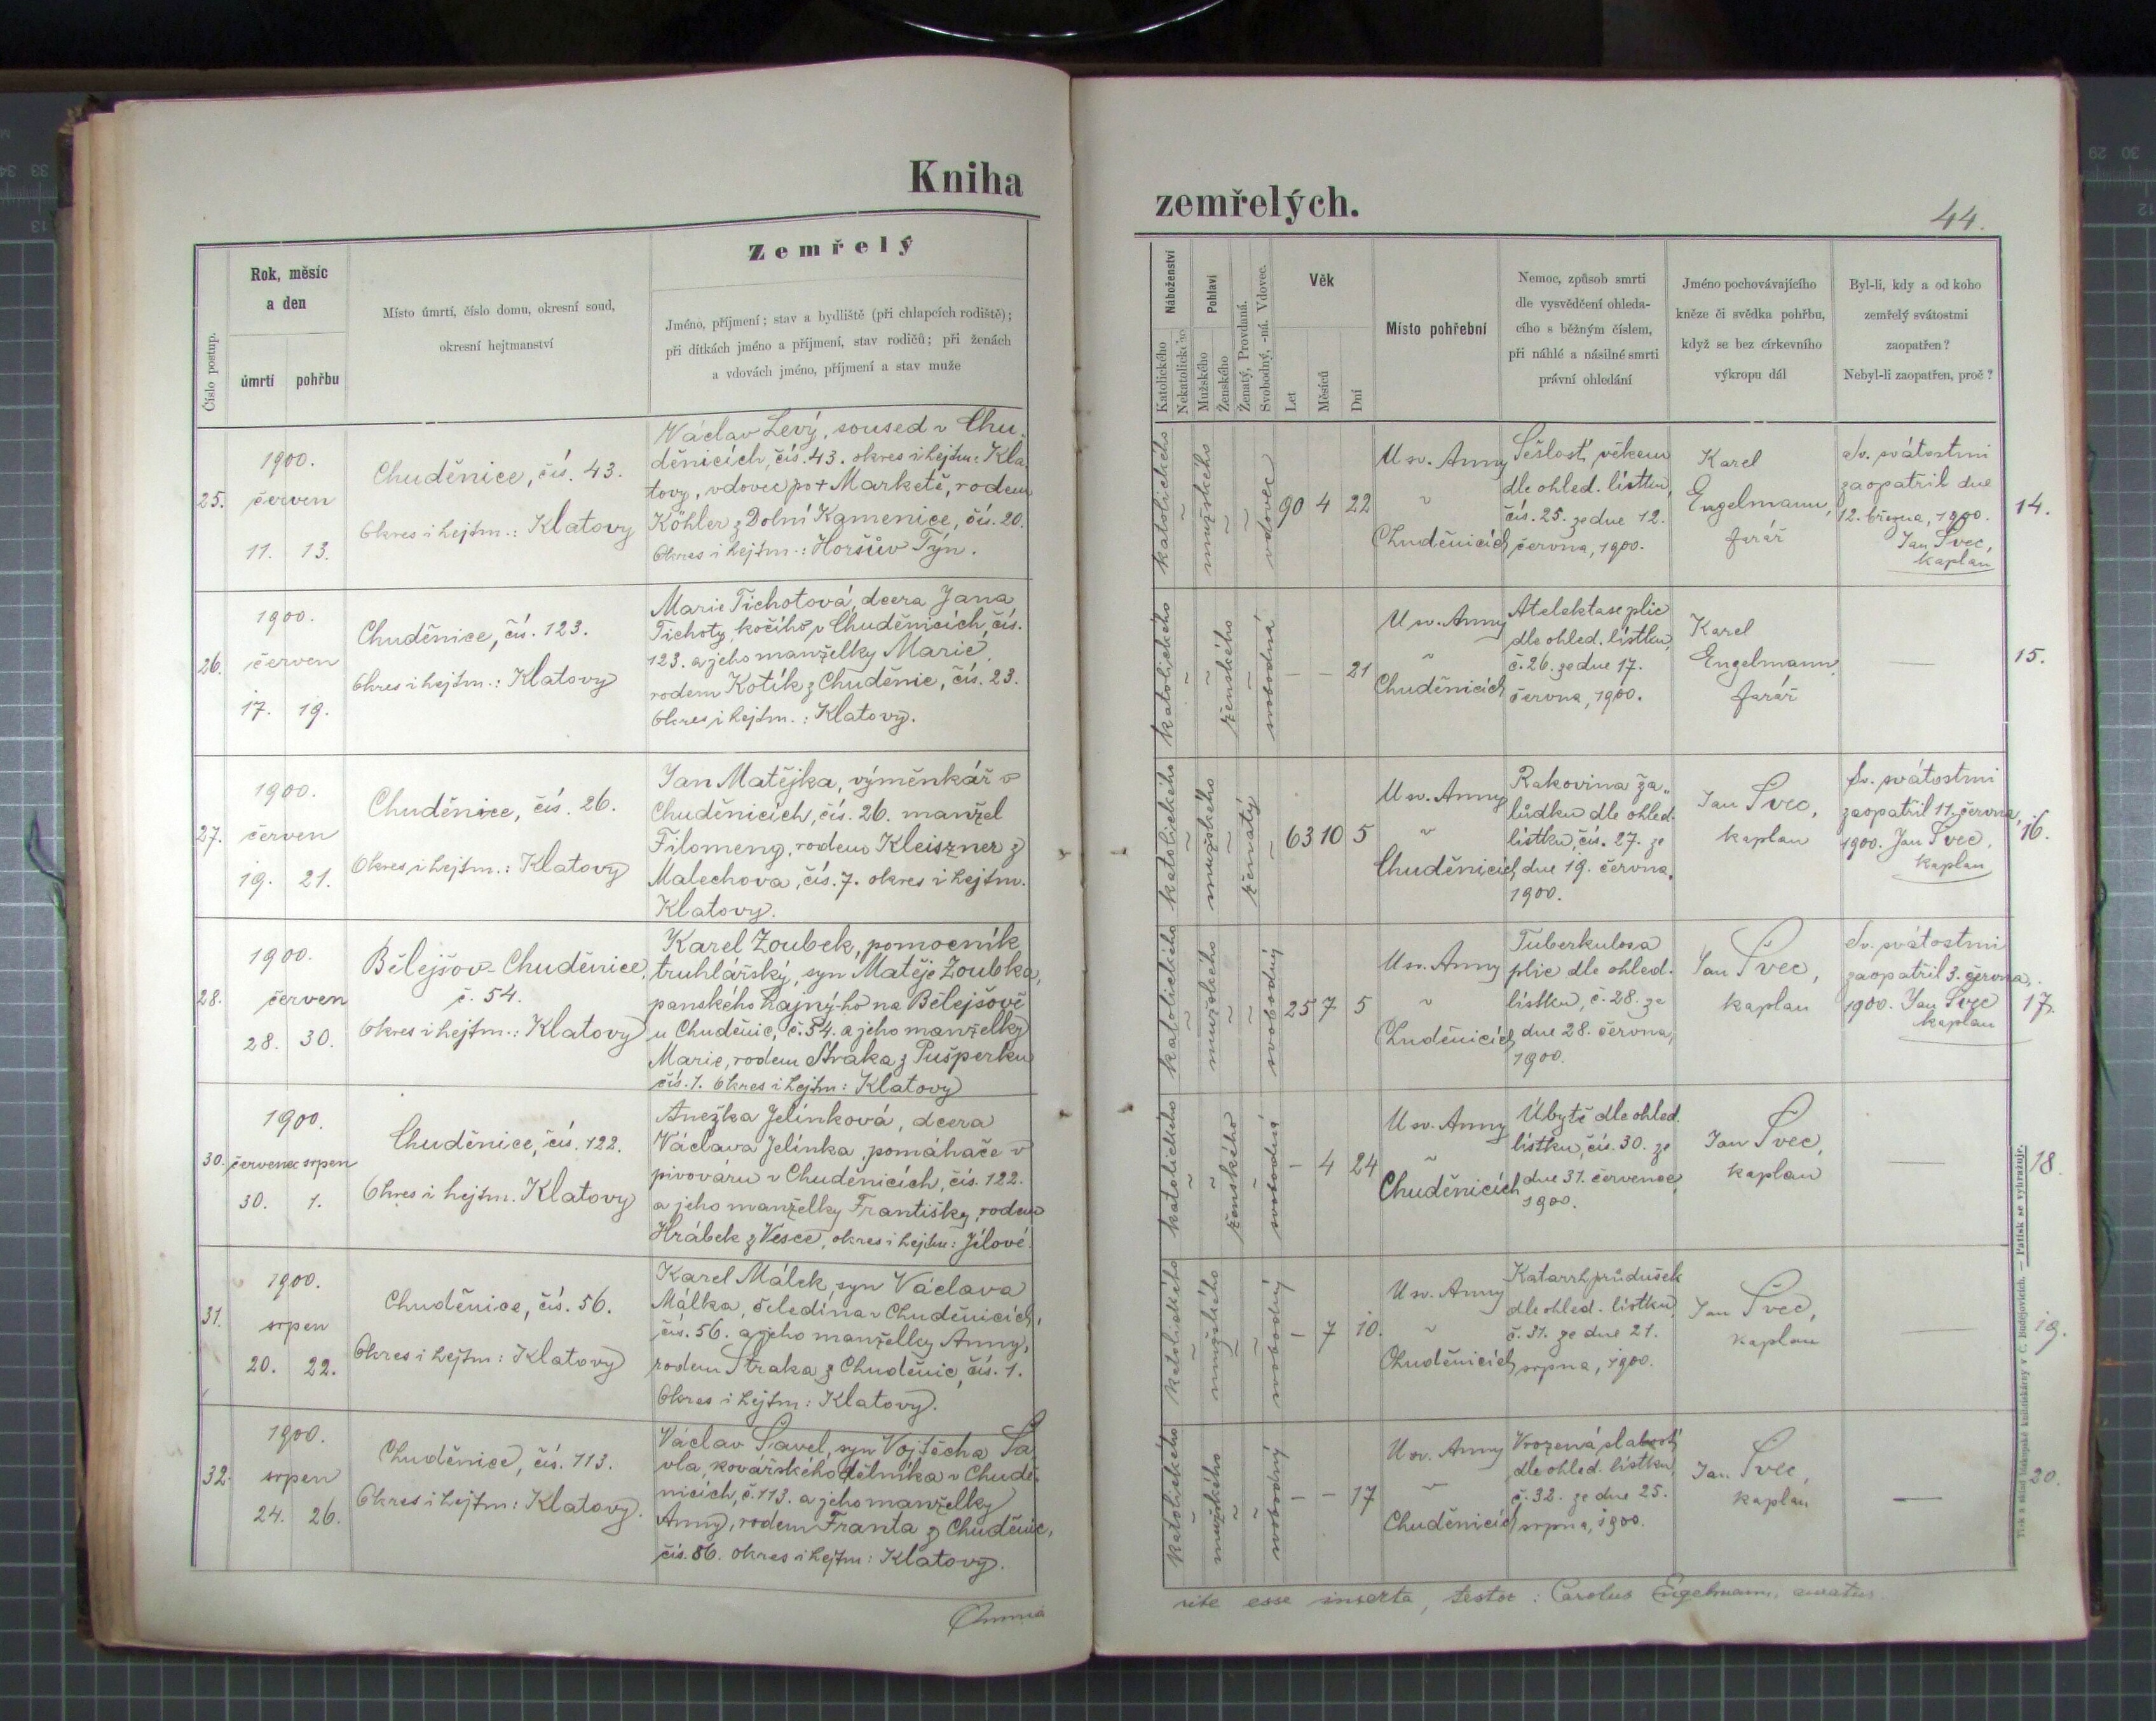 Kniha
zemřelých.
44.
Číslo postup.
Rok, měsíc
a den
úmrtí pohřbu
Místo úmrtí, číslo domu, okresní soud,
okresní hejtmanství
Zemřelý
Jméno, příjmení; stav a bydliště (při chlapcích rodiště);
při dítkách jméno a příjmení, stav rodičů; při ženách
a vdovách jméno, příjmení a stav muže
Náboženství
Katolického
Nekatolického
Pohlaví
Mužského
Ženského
Ženatý, Provdaná.
Svobodný, -ná. Vdovec.
Věk
Let
Měsíců
Dní
Místo pohřební
Nemoc, způsob smrti
dle vysvědčení ohleda-
cího s běžným číslem,
při náhlé a násilné smrti
právní ohledání
Jméno pochovávajícího
kněze či svědka pohřbu,
když se bez církevního
výkropu dál
Byl-li, kdy a od koho
zemřelý svátostmi
zaopatřen?
Nebyl-li zaopatřen, proč?
25.
1900.
červen
11. 13.
Chuděnice, čís. 43.
Okres i hejtm.: Klatovy
Václav Levý, soused v Chu-
děnicích, čís. 43. okres i hejtm: Kla-
tovy, vdovec po + Markétě, rodem
Köhler z Dolní Kamenice, čís. 20.
Okres i hejtm.: Horšův Týn.
katolického
~
mužského
~
~
vdovec
90 4 22
U sv. Anny
v
Chuděnicích
Sešlost věkem
dle ohled. lístku,
čís. 25. ze dne 12.
června, 1900.
Karel
Engelmann,
farář
Sv. svátostmi
zaopatřil dne
12. března, 1900.
Jan Švec,
kaplan
14.
26.
1900.
červen
17. 19.
Chuděnice, čís. 123.
Okres i hejtm.: Klatovy
Marie Tichotová, dcera Jana
Tichoty, kočího v Chuděnicích, čís.
123. a jeho manželky Marie,
rodem Kotík z Chuděnic, čís. 23.
Okres i hejtm.: Klatovy.
katolického
~
~
ženského
~
svobodná
– – 21
U sv. Anny
v
Chuděnicích
Atelektase plic
dle ohled. lístku,
č. 26. ze dne 17.
června, 1900.
Karel
Engelmann,
farář
—
15.
27.
1900.
červen
19. 21.
Chuděnice, čís. 26.
Okres i hejtm.: Klatovy
Jan Matějka, výměnkář v
Chuděnicích, čís. 26. manžel
Filomeny, rodem Kleiszner z
Malechova, čís. 7. okres i hejtm.
Klatovy.
katolického
~
mužského
~
ženatý
~
63 10 5
U sv. Anny
v
Chuděnicích
Rakovina ža-
lúdku dle ohled.
lístku, čís. 27. ze
dne 19. června,
1900.
Jan Švec,
kaplan
Sv. svátostmi
zaopatřil 11. června,
1900. Jan Švec,
kaplan
16.
28.
1900.
červen
28. 30.
Bělejšov-Chuděnice,
č. 54.
Okres i hejtm.: Klatovy
Karel Zoubek, pomocník
truhlářský, syn Matěje Zoubka,
panského hajný-ho na Bělejšově
u Chuděnic, č. 54. a jeho manželky
Marie, rodem Straka z Pušperku
čís. 1. Okres i hejtm: Klatovy
katolického
~
mužského
~
~
svobodný
25 7 5
U sv. Anny
v
Chuděnicích
Tuberkulosa
plic dle ohled.
lístku, č. 28. ze
dne 28. června,
1900.
Jan Švec,
kaplan
Sv. svátostmi
zaopatřil 3. června,
1900. Jan Švec
kaplan
17.
30.
1900.
červenec srpen
30. 1.
Chuděnice, čís. 122.
Okres i hejtm. Klatovy
Anežka Jelínková, dcera
Václava Jelínka, pomáhače v
pivováru v Chuděnicích, čís. 122.
a jeho manželky Františky, rodem
Hrábek z Vesce, okres i hejtm: Jílové.
katolického
~
~
ženského
~
svobodná
– 4 24
U sv. Anny
v
Chuděnicích
Úbytě dle ohled.
lístku, čís. 30. ze
dne 31. července,
1900.
Jan Švec,
kaplan
—
18.
31.
1900.
srpen
20. 22.
Chuděnice, čís. 56.
Okres i hejtm: Klatovy
Karel Málek, syn Václava
Málka, čeledína v Chuděnicích,
čís. 56. a jeho manželky Anny,
rodem Straka z Chuděnic, čís. 1.
Okres i hejtm: Klatovy.
katolického
~
mužského
~
~
svobodný
– 7 10.
U sv. Anny
v
Chuděnicích
Katarrh průdušek
dle ohled. lístku,
č. 31. ze dne 21.
srpna, 1900.
Jan Švec,
kaplan
—
19.
32.
1900.
srpen
24. 26.
Chuděnice, čís. 113.
Okres i hejtm: Klatovy.
Václav Šavel, syn Vojtěcha Ša-
vla, kovářského dělníka v Chudě-
nicích, č. 113. a jeho manželky
Anny, rodem Franta z Chuděnic,
čís. 86. okres i hejtm: Klatovy.
katolického
~
mužského
~
~
svobodný
– – 17
U sv. Anny
v
Chuděnicích
Vrozená slabost
dle ohled. lístku,
č. 32. ze dne 25.
srpna, 1900.
Jan Švec,
kaplan
—
20.
Omnia
rite esse inserta, testor: Carolus Engelmann, curatus
Tisk a sklad biskupské knihtiskárny v Č. Budějovicích. — Patisk se vyhražuje.